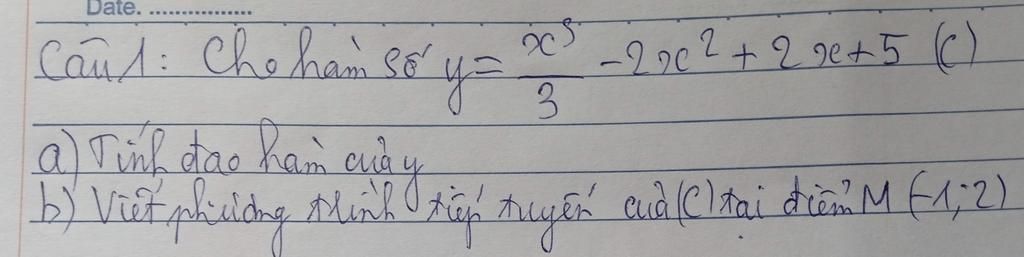 Date. ..................
Câu 1: Cho hàm số y = x³/3 - 2x² + 2x + 5 (C)
a) Tính đạo hàm của y
b) Viết phương trình tiếp tuyến của (C) tại điểm M (-1; 2)